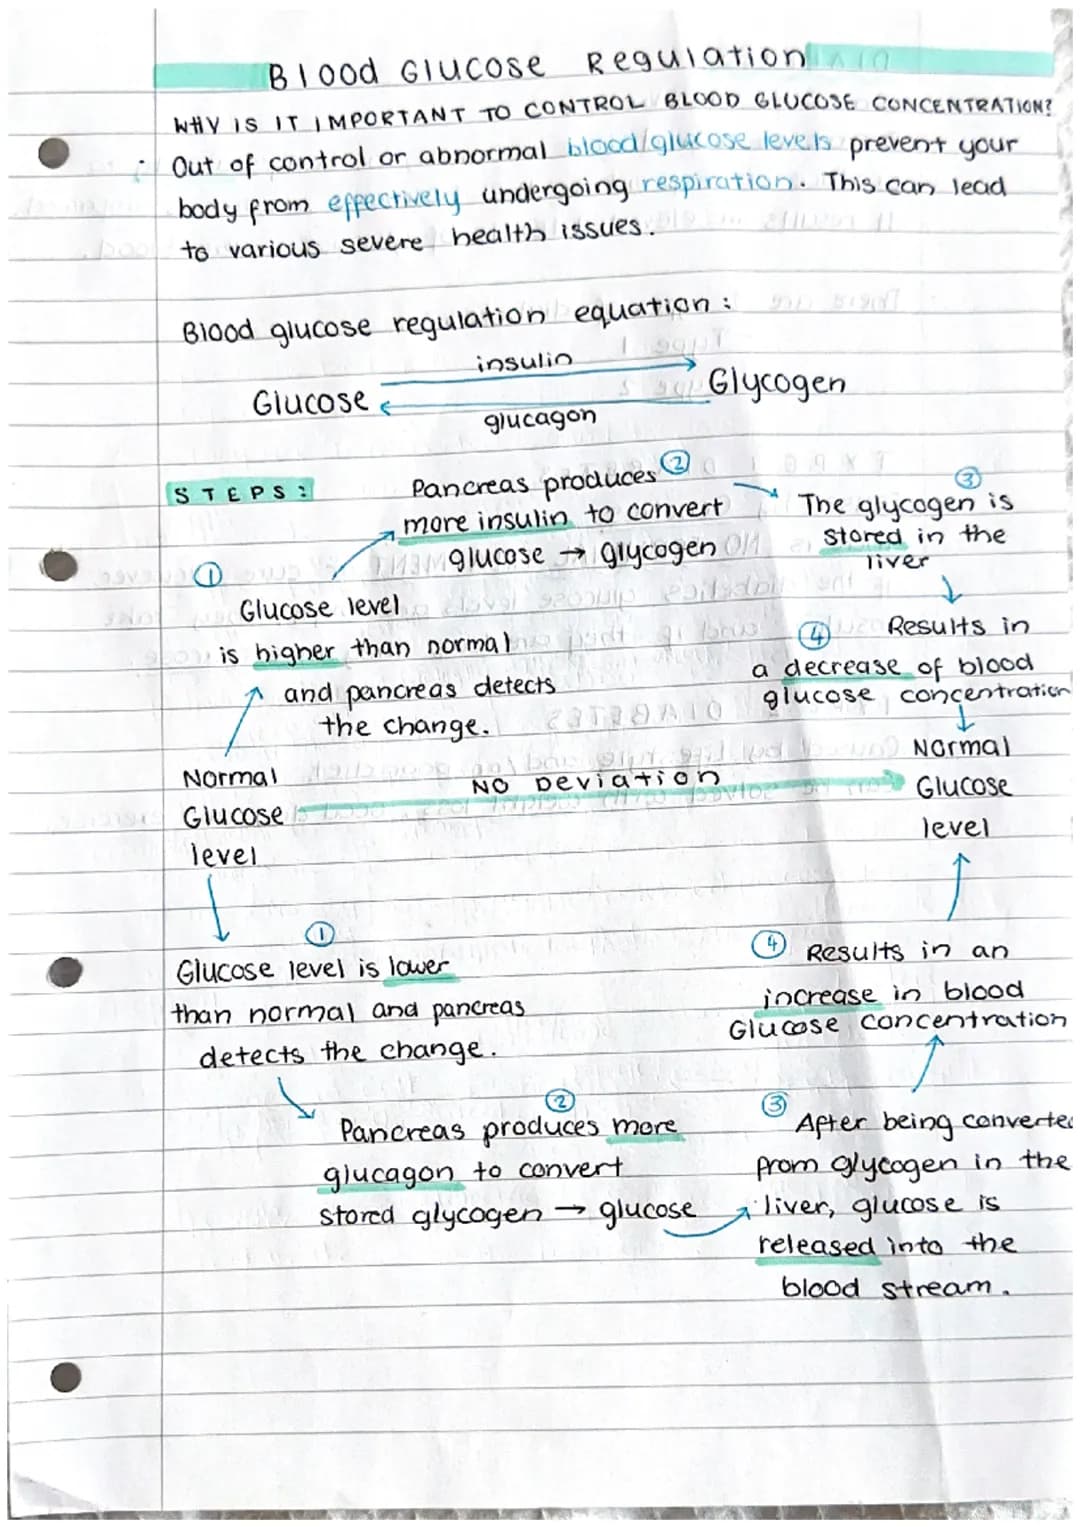 Blood Glucose Regulation
WHY IS IT IMPORTANT TO CONTROL BLOOD GLUCOSE CONCENTRATION?
Out of control or abnormal blood/glucose levels prevent your
body from effectively undergoing respiration. This can lead
to various severe health issues.
Blood glucose regulation equation:
insulin
Glucose
Glycogen
glucagon
STEPS:
①
Glucose level
is higher than normal
and pancreas detects
the change.
②
Pancreas produces
more insulin to convert
glucose → glycogen
③
The glycogen is
stored in the
liver
④
Results in
a decrease of blood
glucose concentration
Normal
Glucose
level
NO Deviation
Normal
Glucose
level
①
Glucose level is lower
than normal and pancreas
detects the change.
②
Pancreas produces more
glucagon to convert
stored glycogen → glucose
③
After being converte
from glycogen in the
liver, glucose is
released into the
blood stream.
④
Results in an
increase in blood
Glucose concentration